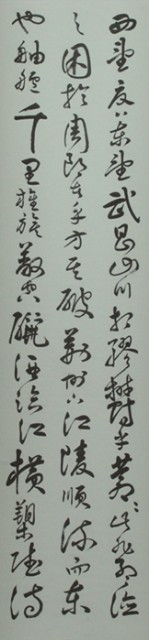 西望夏口東望武昌山川相繆鬱乎蒼〻此非孟德
之困於周郎者乎方其破荊州下江陵順流而東
也舳艫千里旌旗蔽空釃酒臨江橫槊賦詩